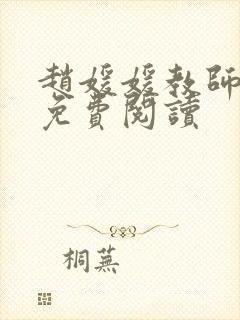 趙媛媛教師
免費閱讀
桐蕪